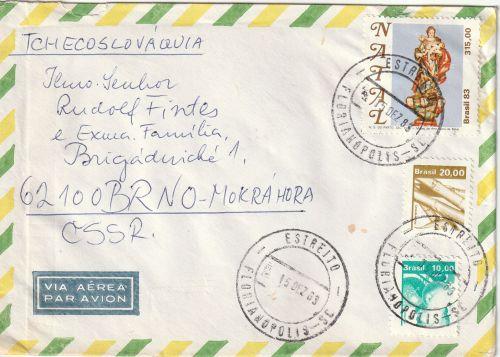 TCHECOSLOVÁQUIA
Ilmo. Senhor
Rudolf Fintes
e Exma. Família,
Brigádnické 1,
62100 BRNO-MOKRÁHORA
ČSSR.
VIA AÉREA
PAR AVION
NATAL
315,00
Brasil 83
ESTREITO
15 DEZ 83
FLORIANÓPOLIS-SC
Brasil 20,00
Brasil 10,00
ESTREITO
15 DEZ 83
FLORIANÓPOLIS-SC
ESTREITO
FLORIANÓPOLIS-SC